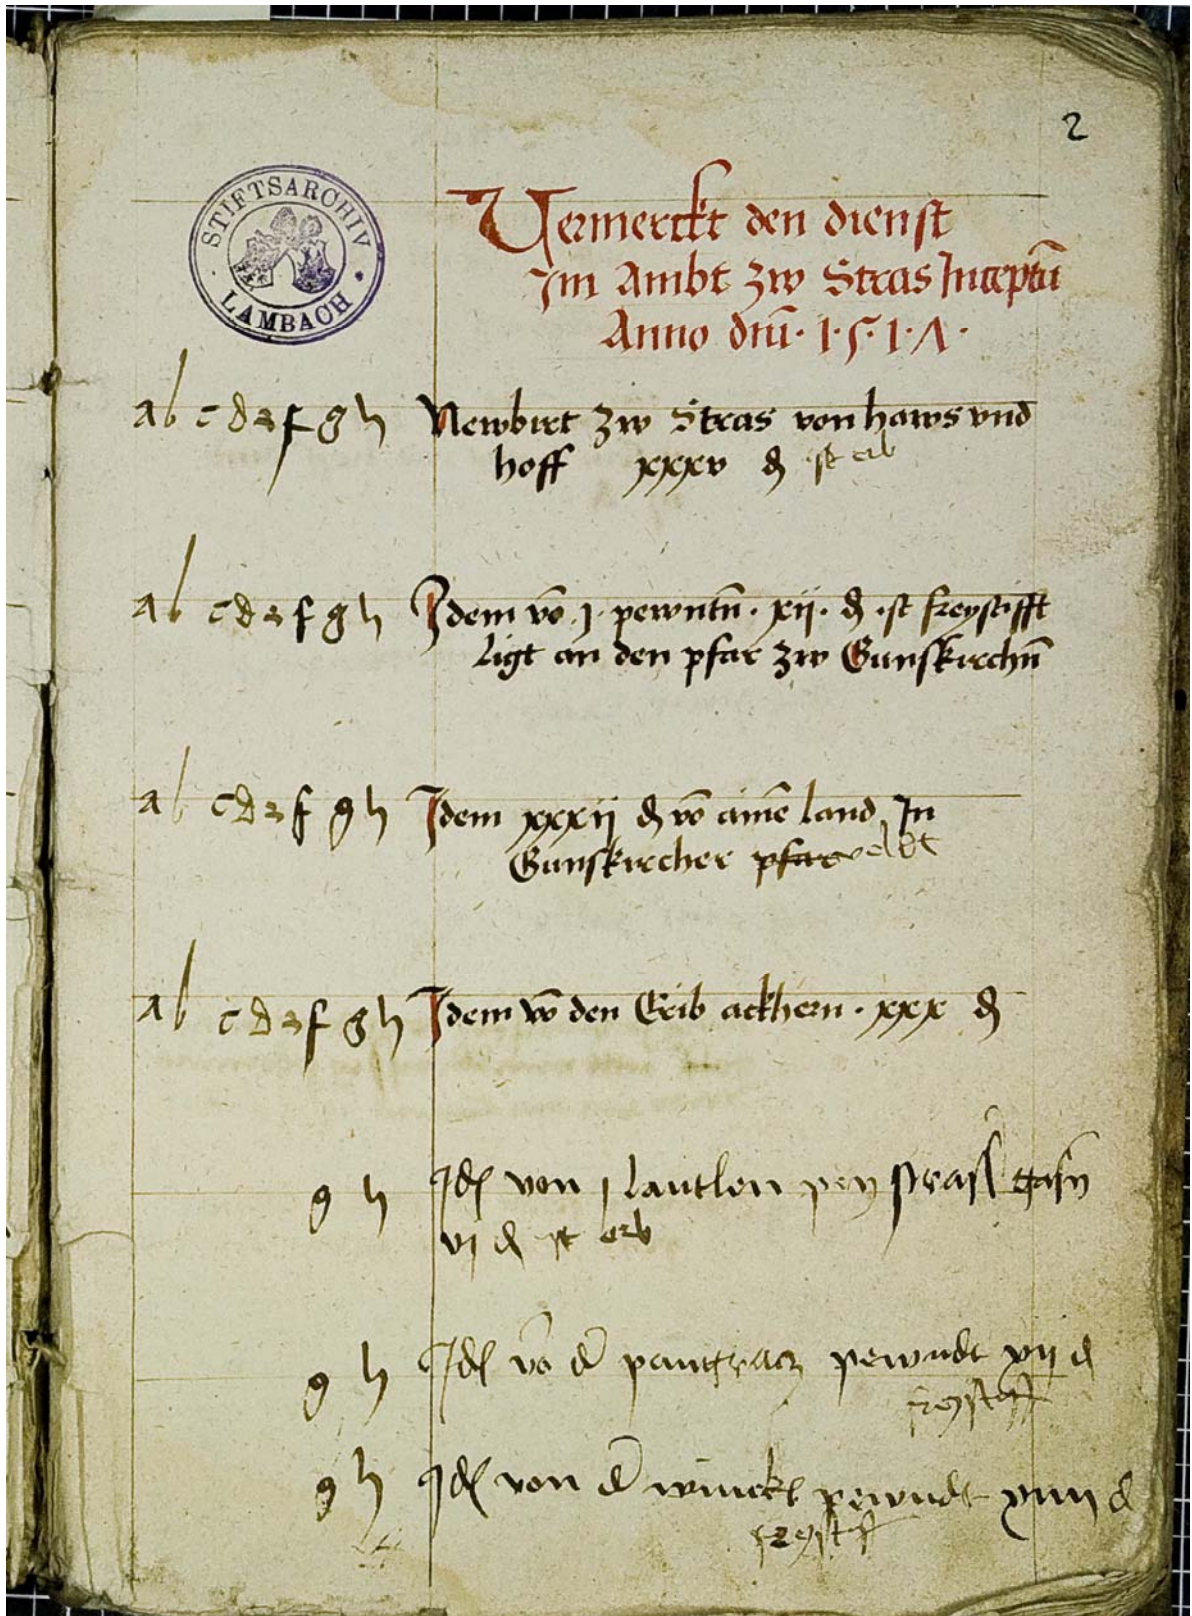 2
STIFTSARCHIV
LAMBACH
Vermerckt den dienst
Im Ambt zw Stras Inceptū
Anno dnī · 1 · 5 · 1 · Λ ·
a b c d e f g h Newbirt zw Stras von haws vnd
hoff xxxv ₰ ist erb
a b c d e f g h Idem vō j · pewntn̄ · xij · ₰ · ist freystifft
ligt an den pfar zw Gunskirchn̄
a b c d e f g h Idem xxxij ₰ vō aimē land In
Gunskircher pfar veldt
a b c d e f g h Idem vō den Erib ackhern · xxx ₰
g h Idem von j lantlen pey strass
vj ₰ ist erb
g h Idem vō d' pangratz pewndt xij ₰
freystifft
g h Idem von d' winckl pewndt xiiij ₰
freystift